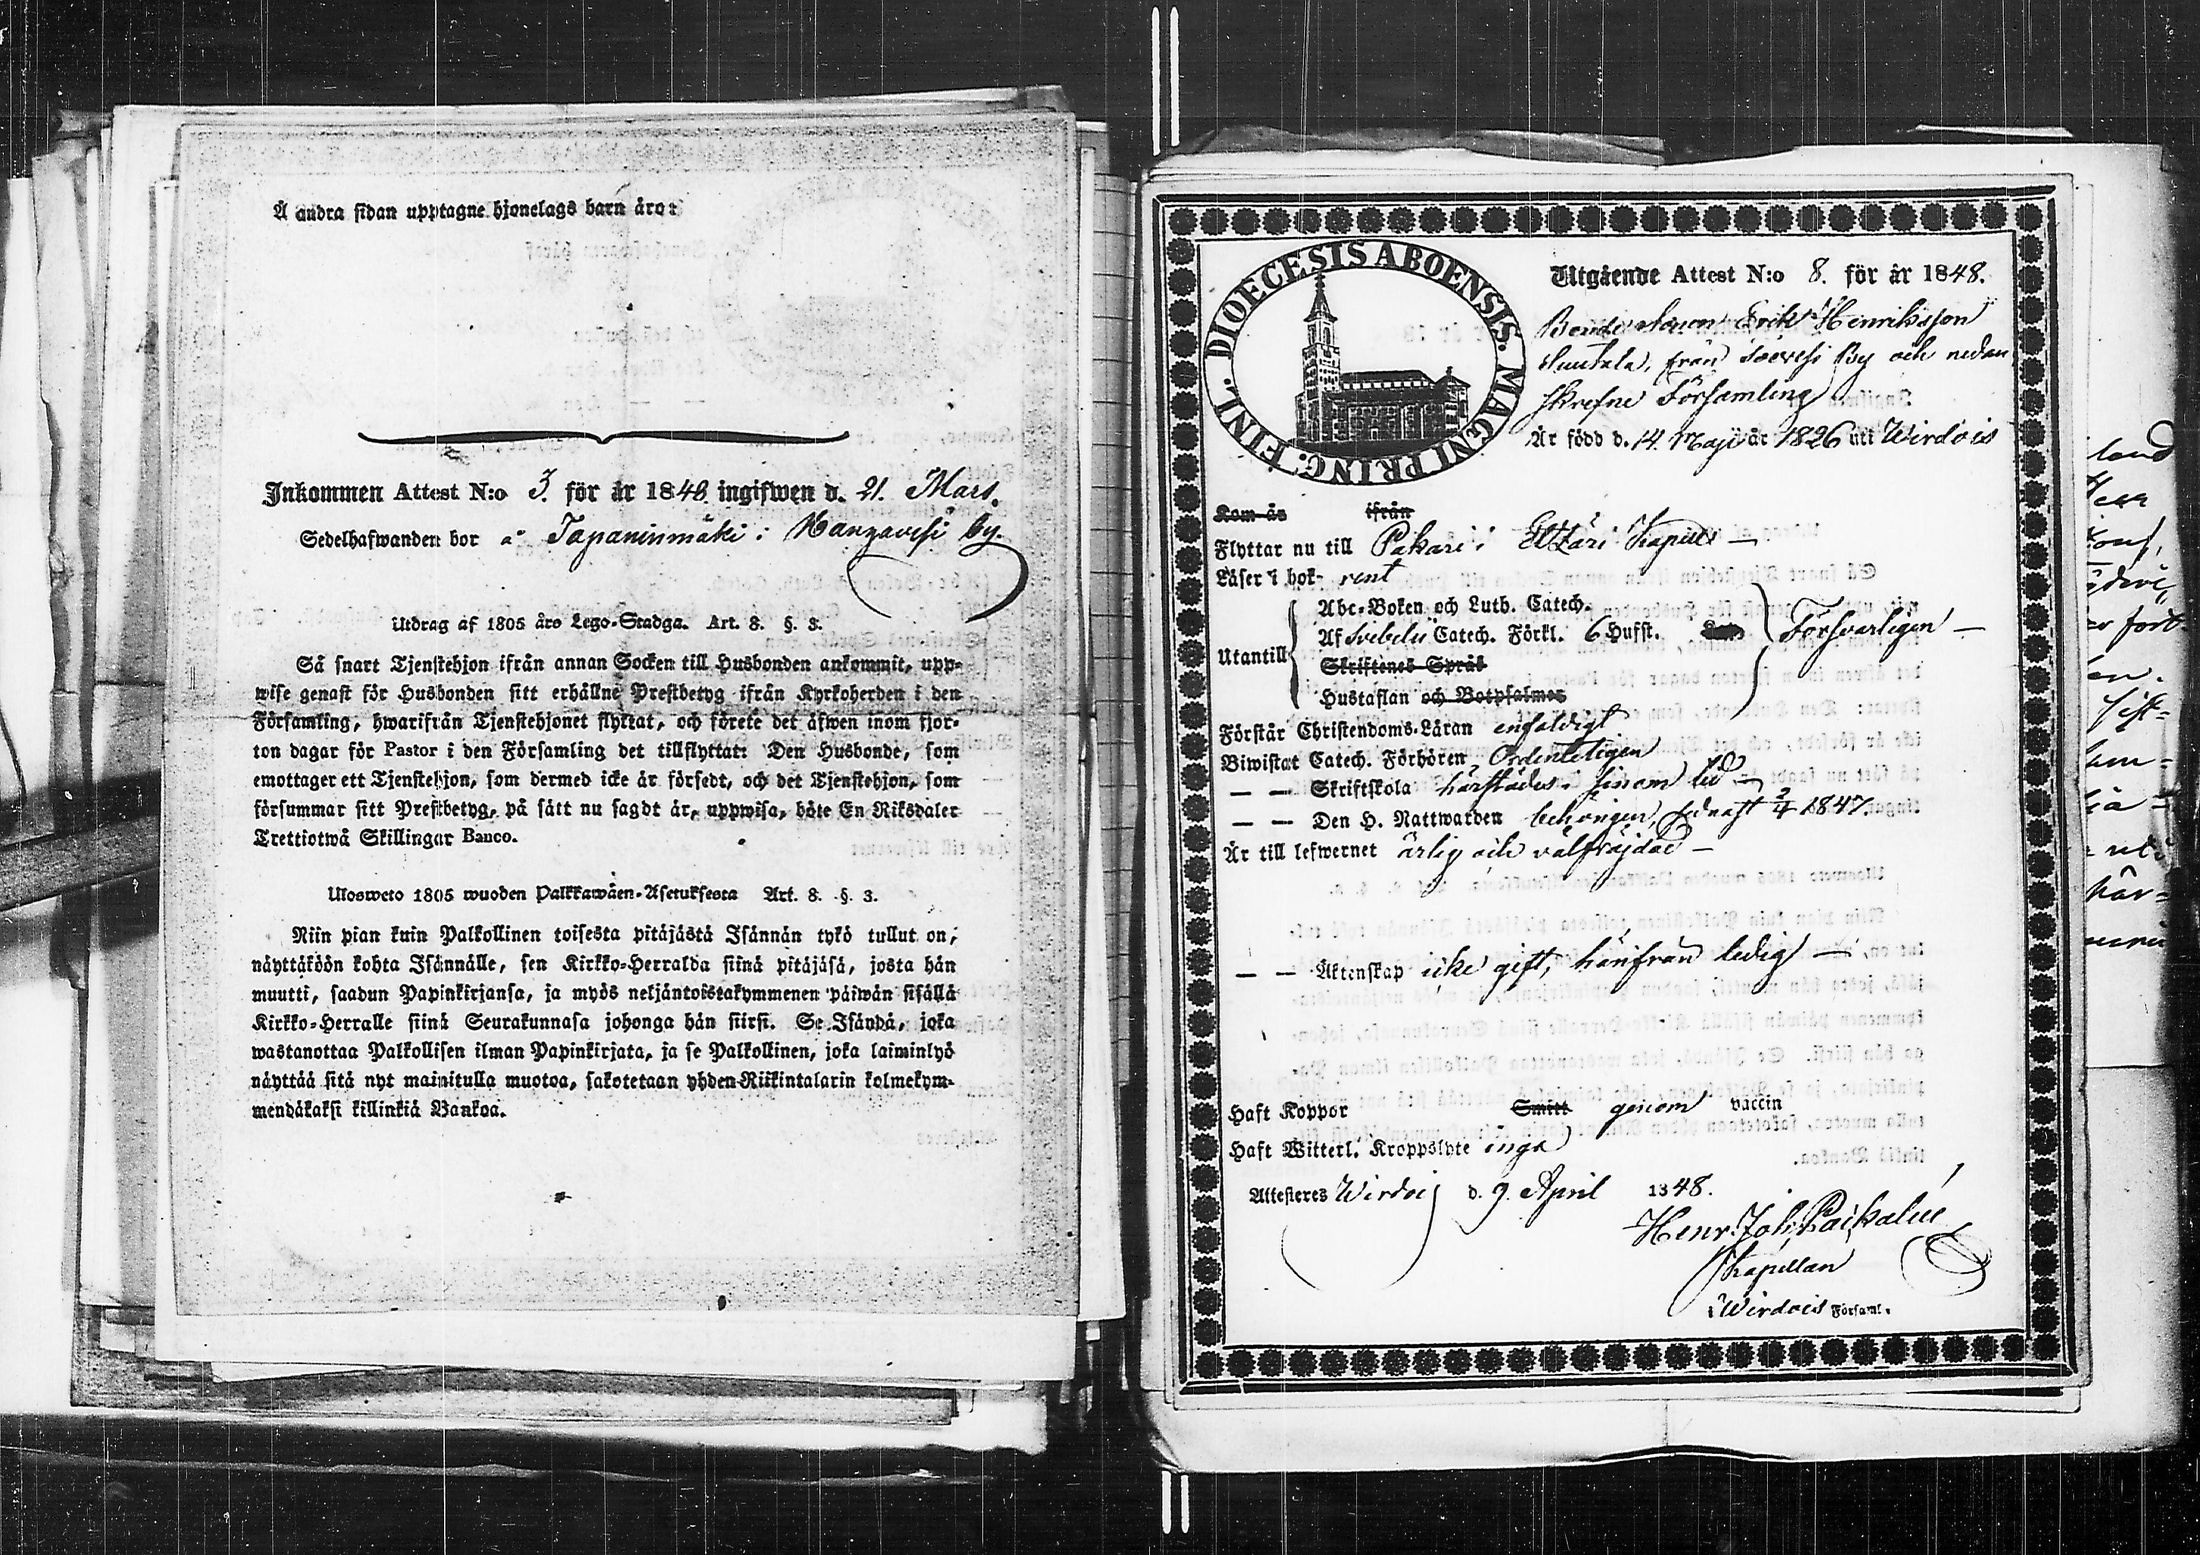 Å andra sidan upptagne hjonelags barn äro:
Inkommen Attest N:o 3. för år 1848 ingifwen d. 21. Mars.
Sedelhafwanden bor å Tapaninmäki i Kangavesi by.
Utdrag af 1805 års Lego-Stadga. Art. 8. §. 3.
Så snart Tjenstehjon ifrån annan Socken till Husbonden ankommit, upp-
wise genast för Husbonden sitt erhållne Prestbetyg ifrån Kyrkoherden i den
Församling, hwarifrån Tjenstehjonet flyttat, och förete det äfwen inom fjor-
ton dagar för Pastor i den Församling det tillflyttat: Den Husbonde, som
emottager ett Tjenstehjon, som dermed icke är försedt, och det Tjenstehjon, som
försummar sitt Prestbetyg, på sätt nu sagdt är, uppwisa, böte En Riksdaler
Trettiotwå Skillingar Banco.
Ulosweto 1805 wuoden Palkkawäen-Asetuksesta Art. 8. §. 3.
Niin pian kuin Palkollinen toisesta pitäjästä Isännän tykö tullut on,
näyttäköön kohta Isännälle, sen Kirkko-Herralda siinä pitäjäsä, josta hän
muutti, saadun Papinkirjansa, ja myös neljäntoistakymmenen päiwän sisällä
Kirkko-Herralle siinä Seurakunnasa johonga hän siirsi. Se Isändä, joka
wastanottaa Palkollisen ilman Papinkirjata, ja se Palkollinen, joka laiminlyö
näyttää sitä nyt mainitulla muotoa, sakotetaan yhden Riikintalarin kolmekym-
mendäkaksi killinkiä Bankoa.
DIOECESIS ABOENSIS. MAGNI PRINC. FINL.
Utgående Attest N:o 8. för år 1848.
Bondesonen Erik Henriksson
från By och nedan
skrefne Församling
Är född d. 14. Maji år 1826 uti Wirdois
Kom år ifrån
Flyttar nu till Pakari i Etzäri Kapell —
Läser i bok rent
Abc-Boken och Luth. Catech.
Utantill Af Svebelii Catech. Förkl. 6 Hufst. Försvarligen —
Skriftenes Språk
Hustaflan och Botpsalmer
Förstår Christendoms-Läran enfaldigt
Biwistat Catech. Förhören Ordenteligen
— — Skriftskola härstädes i sinom tid —
— — Den H. Nattwarden behörigen, sednast 2/4 1847.
Är till lefwernet ärlig och välfräjdad —
— — Äktenskap icke gift, hänifrån ledig —
Haft Koppor Smitt genom vaccin
Haft Witterl. Kroppslyte inga
Attesteras Wirdois d. 9. April 1848.
Henr. Joh.
Kapellan
i Wirdois Församl.